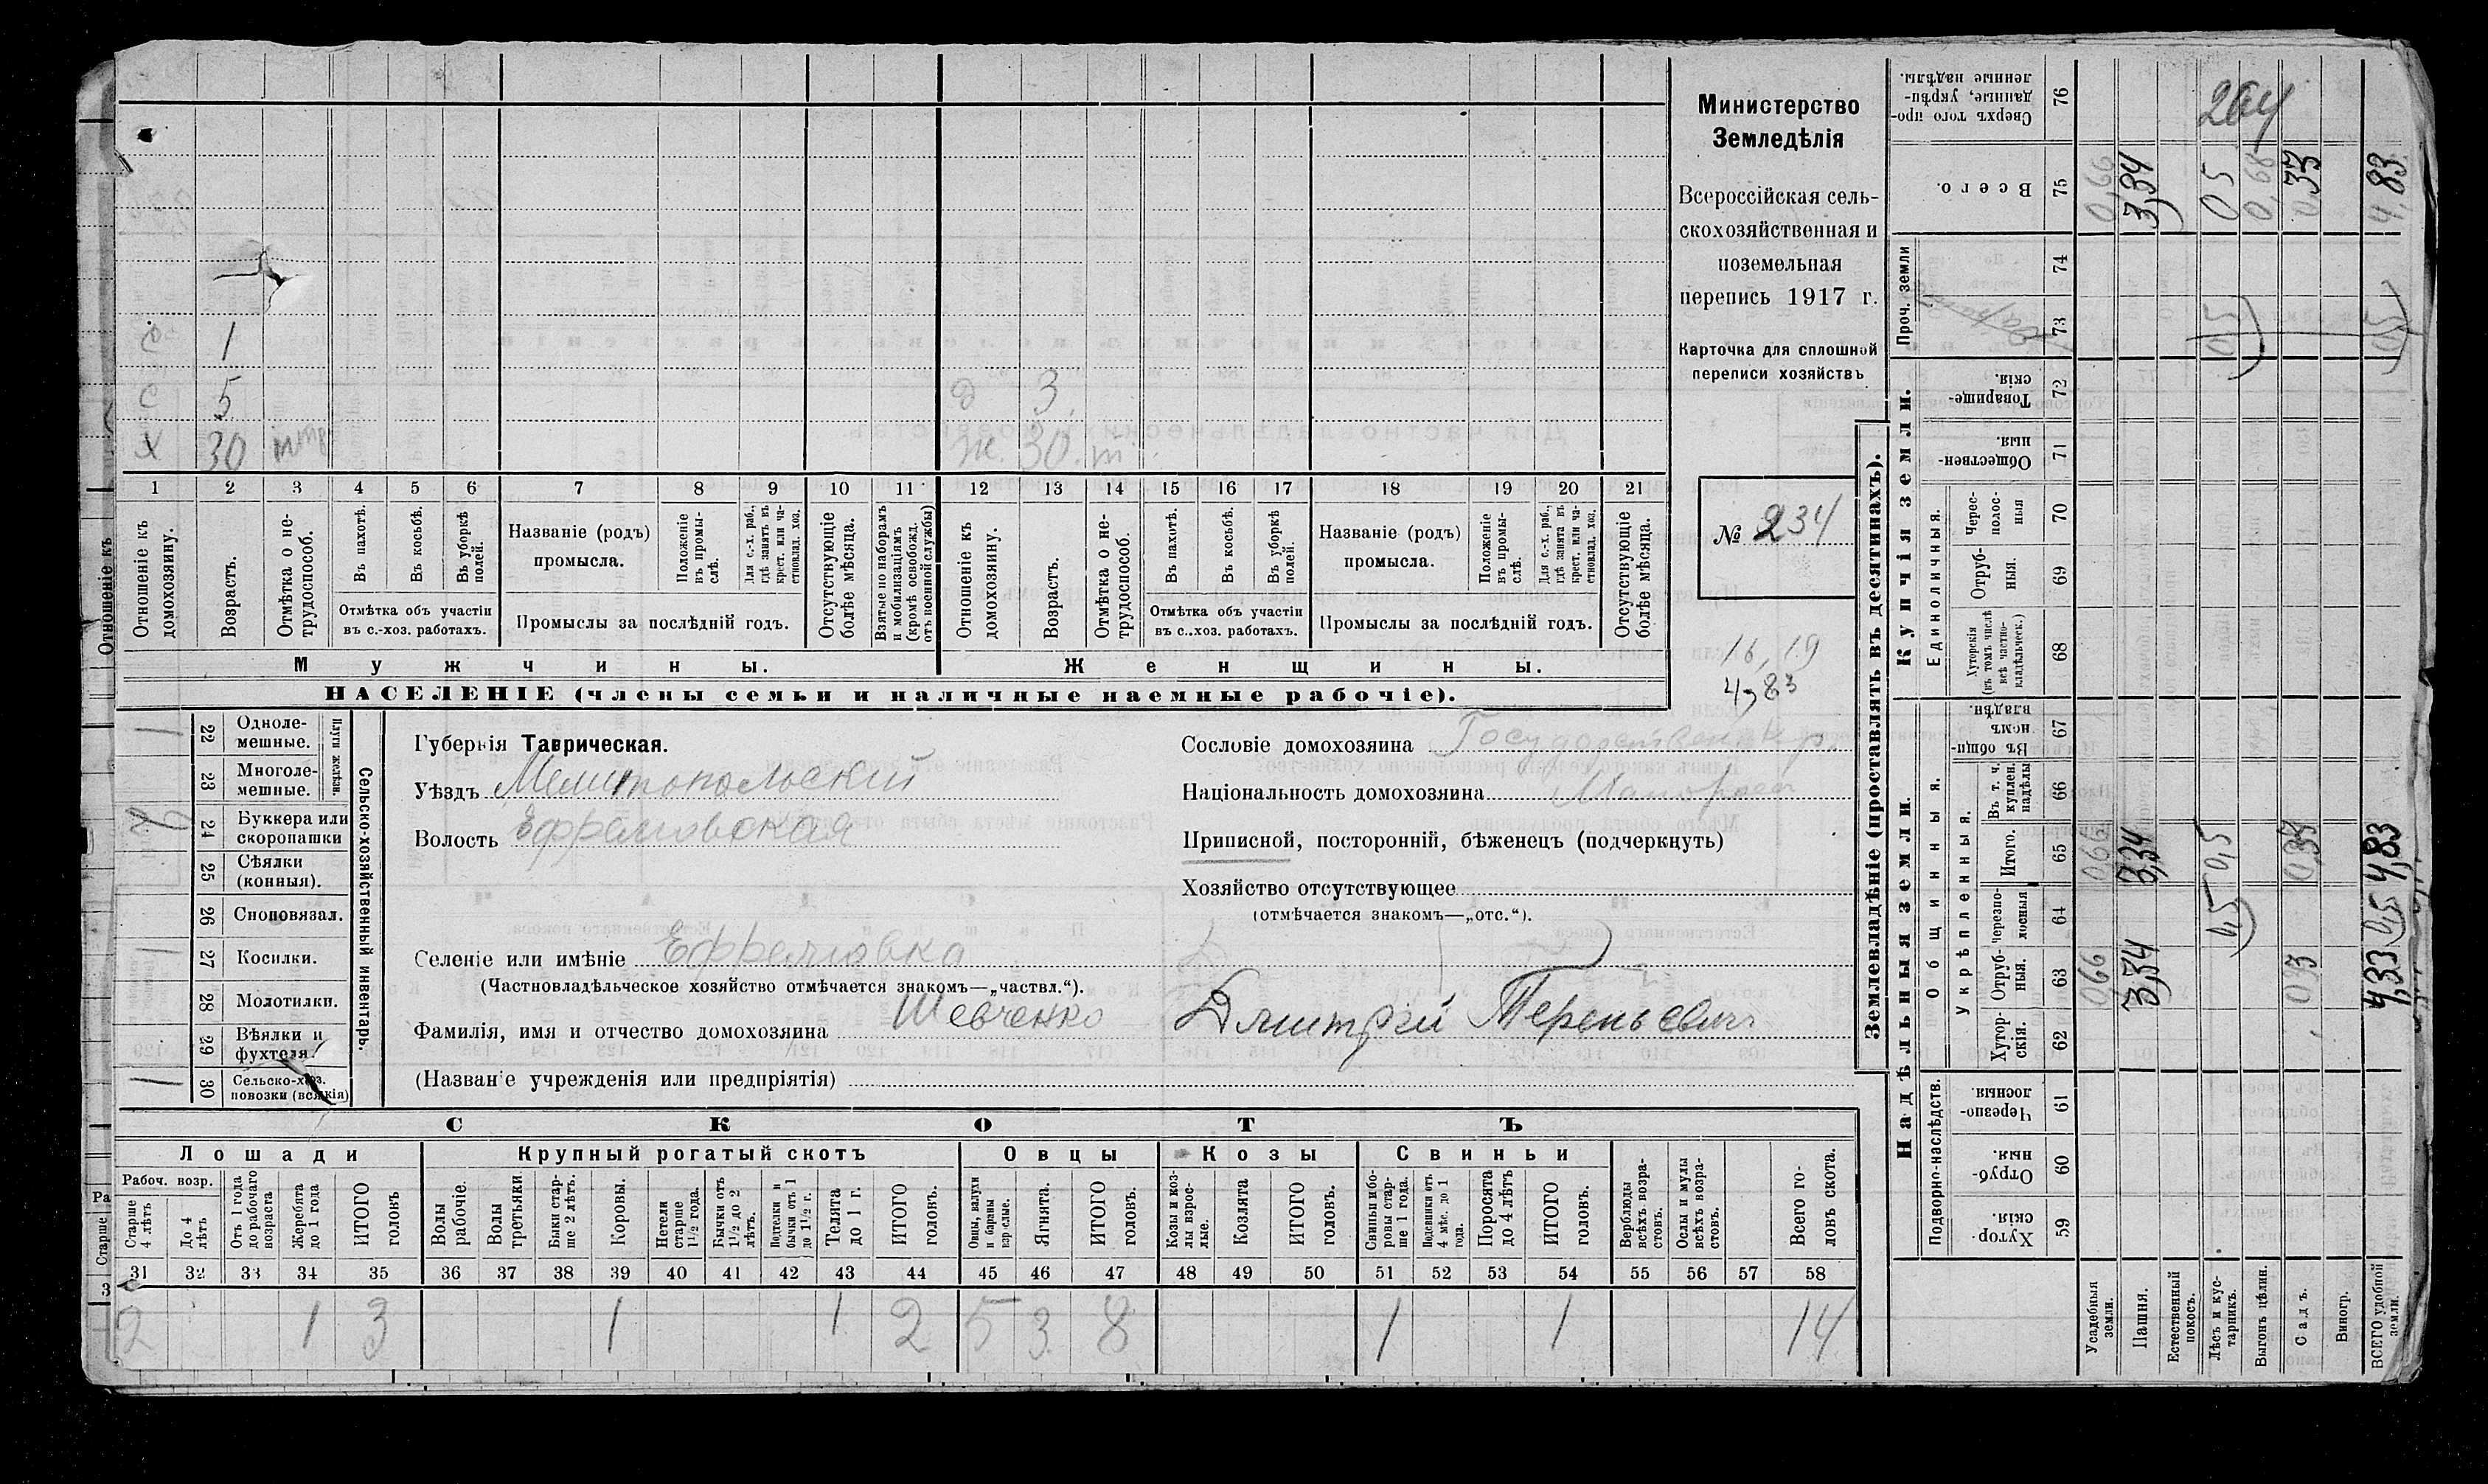 Министерство
Земледѣлія
Всероссійская сель-
скохозяйственная и
поземельная
перепись 1917 г.
Карточка для сплошной
переписи хозяйствъ
№ 234
16,19
4,83
с 1
с 5 д 3
х 30 ж. 30. т
1 2 3 4 5 6 7 8 9 10 11 12 13 14 15 16 17 18 19 20 21
Отношеніе къ домохозяину.
Возрастъ.
Отмѣтка о не-трудоспособ.
Въ пахотѣ.
Въ косьбѣ.
Въ уборкѣ полей.
Отмѣтка объ участіи
въ с.-хоз. работахъ.
Названіе (родъ)
промысла.
Положеніе въ промы-слѣ.
Для с.-х. раб., гдѣ занятъ въ крест. или ча-стновлад. хоз.
Промыслы за послѣдній годъ.
Отсутствующіе болѣе мѣсяца.
Взятые по наборамъ и мобилизаціямъ (кромѣ освобожд. отъ военной службы)
Отношеніе къ домохозяину.
Возрастъ.
Отмѣтка о не-трудоспособ.
Въ пахотѣ.
Въ косьбѣ.
Въ уборкѣ полей.
Отмѣтка объ участіи
въ с..хоз. работахъ.
Названіе (родъ)
промысла.
Положеніе въ промы-слѣ.
Для с.-х. раб., гдѣ занята въ крест. или ча-стновлад. хоз.
Промыслы за послѣдній годъ.
Отсутствующіе болѣе мѣсяца.
Мужчины. Женщины.
НАСЕЛЕНІЕ (члены семьи и наличные наемные рабочіе).
Сельско-хозяйственный инвентарь.
Плуги желѣзн.
1 22 Одноле-мешные.
23 Многоле-мешные.
24 Буккера или скоропашки
25 Сѣялки (конныя).
26 Сноповязал.
1 27 Косилки.
28 Молотилки.
29 Вѣялки и фухтеля.
1 30 Сельско-хоз. повозки (всякія)
Губернія Таврическая.
Уѣздъ Мелитопольский
Волость Ефремовская
Селеніе или имѣніе Ефремовка
(Частновладѣльческое хозяйство отмѣчается знакомъ—„частвл.“).
Фамилія, имя и отчество домохозяина Шевченко Дмитрій Терентьевич
(Названіе учрежденія или предпріятія)
Сословіе домохозяина Государствен. кр.
Національность домохозяина Малоросс
Приписной, посторонній, бѣженецъ (подчеркнуть)
Хозяйство отсутствующее
(отмѣчается знакомъ—„отс.“).
СКОТЪ
Лошади Крупный рогатый скотъ Овцы Козы Свиньи
Рабоч. возр.
Старше 4 лѣтъ
До 4 лѣтъ
Отъ 1 года до рабочаго возраста
Жеребята до 1 года
ИТОГО головъ
Волы рабочіе.
Волы третьяки
Быки стар-ше 2 лѣтъ.
Коровы.
Нетели старше 1½ года.
Бычки отъ 1½ до 2 лѣтъ.
Подтелки и бычки отъ 1 до 1½ г.
Телята до 1 г.
ИТОГО головъ.
Овцы, валухи и бараны взрослые.
Ягнята.
ИТОГО головъ.
Козы и коз-лы взрос-лые.
Козлята
ИТОГО головъ.
Свиньи и бо-ровы стар-ше 1 года.
Подсвинки отъ 4 мѣс. до 1 года.
Поросята до 4 лѣтъ
ИТОГО головъ.
Верблюды всѣхъ возра-стовъ.
Ослы и мулы всѣхъ возра-стовъ.
Всего го-ловъ скота.
31 32 33 34 35 36 37 38 39 40 41 42 43 44 45 46 47 48 49 50 51 52 53 54 55 56 57 58
2 1 3 1 1 2 5 3 8 1 1 14
Землевладѣніе (проставлять въ десятинахъ).
Купчія земли.
Надѣльныя земли.
76 Сверхъ того про-данные, укрѣп-ленные надѣлы. 264
75 Всего. 0,66 3,34 0,5 0,66 0,33 4,83
Проч. земли
74
73 0,5 0,5
72 Товарище-скія.
71 Обществен-ныя.
Единоличныя.
70 Черес-полос-ныя
69 Отруб-ныя.
68 Хуторскія (въ томъ числѣ всѣ частно-владѣльческ.)
Общинныя.
67 Въ общи-номъ владѣн.
Укрѣпленныя.
66 Въ т. ч. куплен. надѣлы
65 Итого. 0,66 3,34 0,5 0,33 4,83
64 Черезпо-лосныя 0,5 0,5
63 Отруб-ныя. 0,66 3,34 0,3 4,33
62 Хутор-скія.
Подворно-наслѣдств.
61 Черезпо-лосныя
60 Отруб-ныя.
59 Хутор-скія.
Усадебныя земли.
Пашня.
Естественный покосъ.
Лѣсъ и кус-тарникъ.
Выгонъ цѣлин.
Садъ.
Виногр.
ВСЕГО удобной земли.